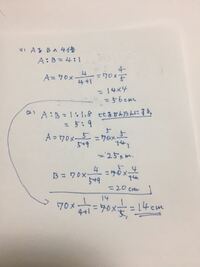 (1) AはBの4倍
A:B=4:1
A=70×4/4+1=70×4/5
=14×4
=56cm
(2) A:B=1:1.8
=5:9
A=70×5/5+9=70×5/14
=25cm
B=70×4/5+9=70×4/14
=20cm
70×1/4+1=70×1/5=14cm